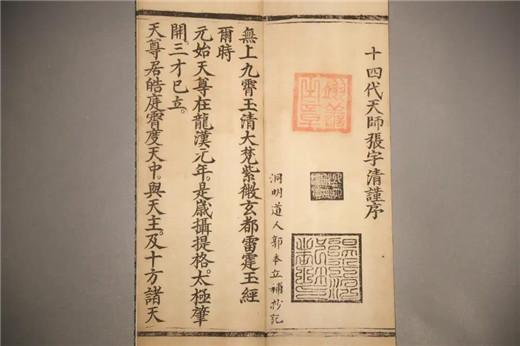 十四代天師張宇清謹序
洞明道人郭本立補抄記
無上九霄玉清大梵紫微玄都雷霆玉經
爾時
元始天尊在龍漢元年。是歲攝提格。太極肇
開。三才已立。
天尊居皓庭霄度天中。與天主。及十方諸天